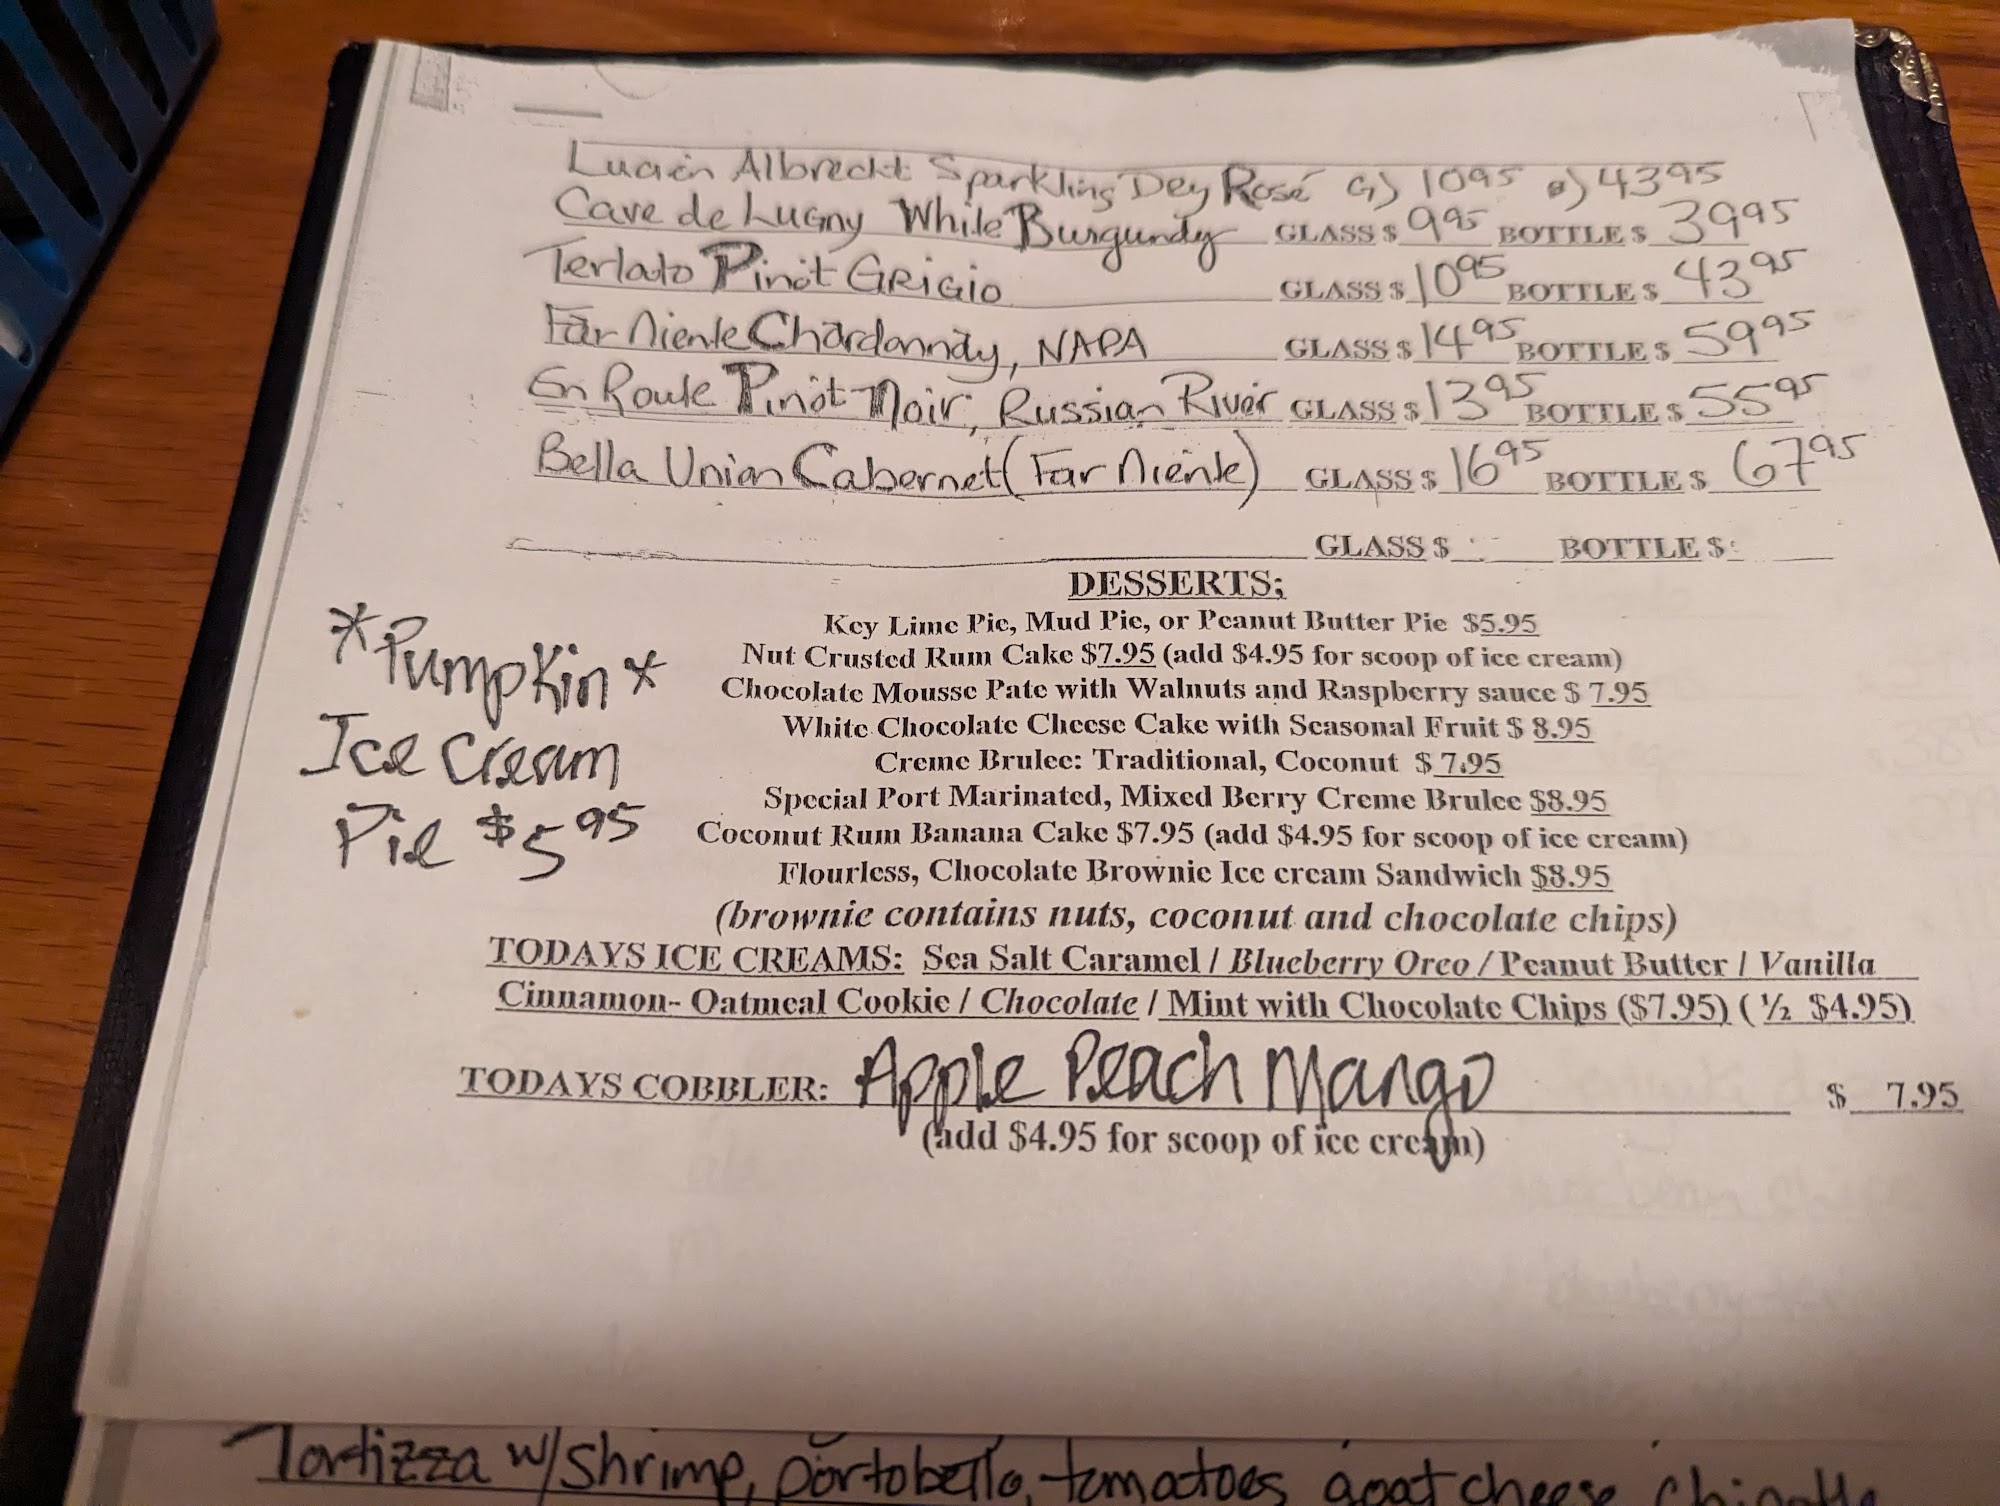 Lucien Albrecht Sparkling Dey Rosé G) 10 95 B) 43 95
Cave de Lugny White Burgundy GLASS $ 9 95 BOTTLE $ 39 95
Terlato Pinot Grigio GLASS $ 10 95 BOTTLE $ 43 95
Far Niente Chardonnay, NAPA GLASS $ 14 95 BOTTLE $ 59 95
En Route Pinot Noir, Russian River GLASS $ 13 95 BOTTLE $ 55 95
Bella Union Cabernet (Far Niente) GLASS $ 16 95 BOTTLE $ 67 95
GLASS $ BOTTLE $
DESSERTS;
Key Lime Pie, Mud Pie, or Peanut Butter Pie $5.95
Nut Crusted Rum Cake $7.95 (add $4.95 for scoop of ice cream)
Chocolate Mousse Pate with Walnuts and Raspberry sauce $ 7.95
White Chocolate Cheese Cake with Seasonal Fruit $ 8.95
Creme Brulee: Traditional, Coconut $ 7.95
Special Port Marinated, Mixed Berry Creme Brulee $8.95
Coconut Rum Banana Cake $7.95 (add $4.95 for scoop of ice cream)
Flourless, Chocolate Brownie Ice cream Sandwich $8.95
(brownie contains nuts, coconut and chocolate chips)
*Pumpkin*
Ice Cream
Pie $5 95
TODAYS ICE CREAMS: Sea Salt Caramel / Blueberry Oreo / Peanut Butter / Vanilla
Cinnamon- Oatmeal Cookie / Chocolate / Mint with Chocolate Chips ($7.95) ( ½ $4.95)
TODAYS COBBLER: Apple Peach Mango $ 7.95
(add $4.95 for scoop of ice cream)
Tortizza w/ Shrimp, portobello, tomatoes goat cheese